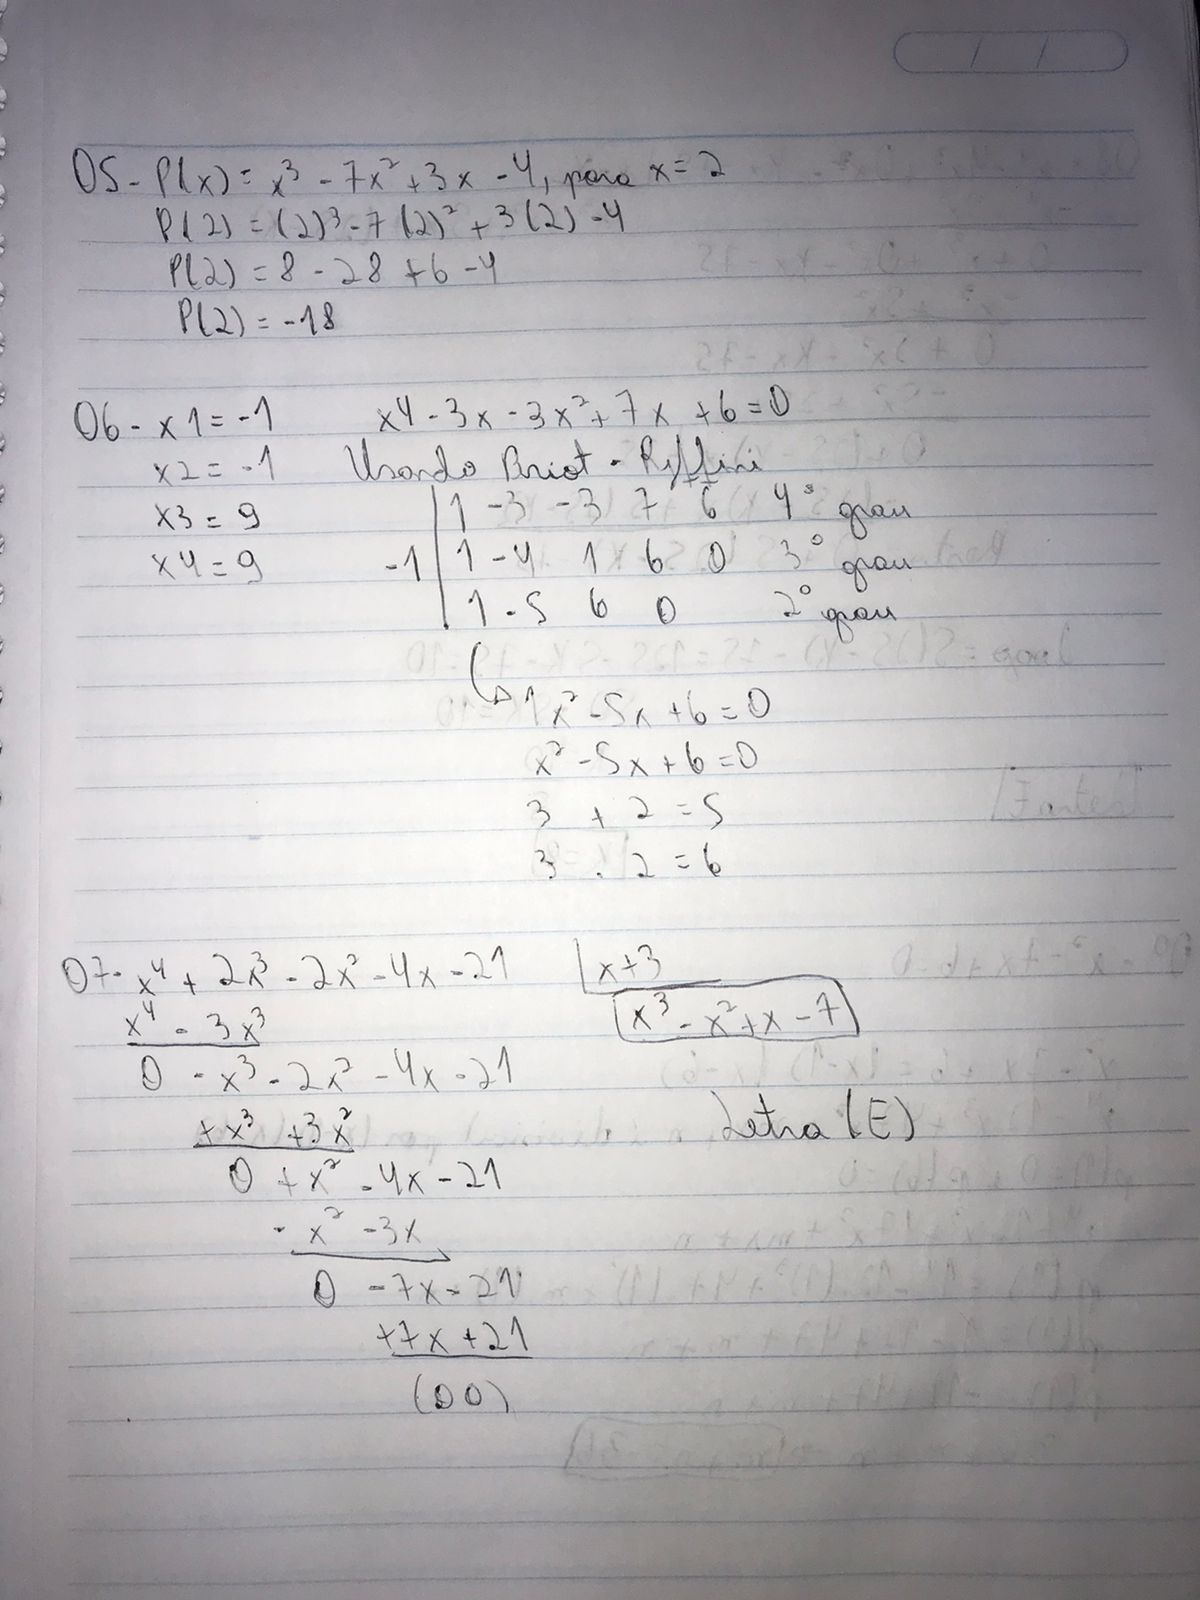 05- P(x) = x³ - 7x² + 3x - 4, para x = 2
P(2) = (2)³ - 7(2)² + 3(2) - 4
P(2) = 8 - 28 + 6 - 4
P(2) = -18
06- x1 = -1 x4 - 3x - 3x² + 7x + 6 = 0
x2 = -1 Usando Briot - Ruffini
x3 = 9 1 -3 -3 7 6 4° grau
x4 = 9 -1 1 -4 1 6 0 3° grau
1 -5 6 0 2° grau
1x² - 5x + 6 = 0
x² - 5x + 6 = 0
3 + 2 = 5
3 . 2 = 6
07- x⁴ + 2x³ - 2x² - 4x - 21 x+3
x⁴ - 3x³ x³ - x² + x - 7
0 - x³ - 2x² - 4x - 21
+x³ +3x² Letra (E)
0 + x² - 4x - 21
- x² - 3x
0 - 7x - 21
+7x + 21
(00)